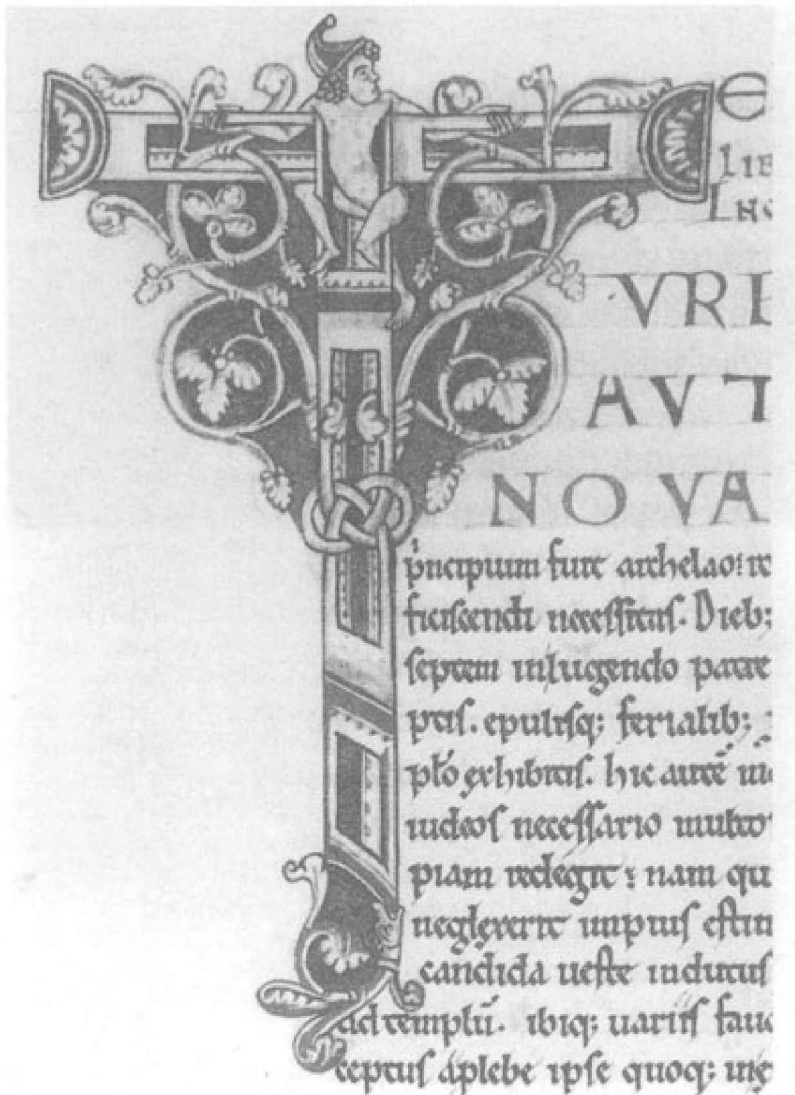 T
E
LIB
INC
VRB
AVT
NOVA
p̍ncipium fuit archelao: ro
ficiscendi necessitas. Dieb;
septem inlugendo patre
ptis. epulisq; ferialib;
plo exhibitis. hic autē m
iudeos necessario multo
piam redegit; nam qu
neglexerit impius estin
candida ueste indutus
ad templū. ibiq; uariis fau
ceptus aplebe ipse quoq;